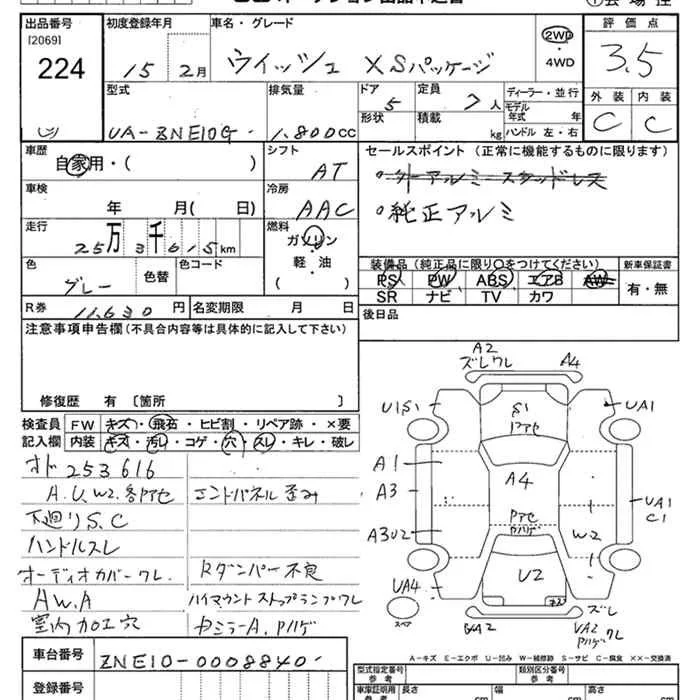 出品番号
[2069]
224
初度登録年月
15 2月
車名・グレード
ウィッシュ XSパッケージ
2WD
・4WD
評価点
3.5
外装 内装
C C
型式
UA-ZNE10G
排気量
1.800cc
ドア 5
形状
定員 7人
積載 kg
ディーラー・並行
モデル年式 年
ハンドル 左・右
車歴
自家用・( )
シフト
AT
セールスポイント(正常に機能するものに限ります)
・純正アルミ
車検
年 月( 日)
冷房
AAC
走行
25万3千615km
燃料
ガソリン
軽・油
( )
色
グレー
色替
色コード
装備品(純正品に限り○をつけてください)
PS PW ABS エアB AW
SR ナビ TV カワ
新車保証書
有・無
R券
11,630円
名変期限 月 日
後日品
注意事項申告欄(不具合内容等は具体的に記入して下さい)
修復歴 有〔箇所 〕
検査員記入欄
FW キズ・飛石・ヒビ割・リペア跡・×要
内装 キズ・汚レ・コゲ・穴・スレ・キレ・破レ
オド 253616
A.U.W2.各アセ エンドパネル歪み
下廻りS.C
ハンドルスレ
オーディオカバーワレ Rダンパー不良
AW.A ハイマウントストップランプワレ
室内加工穴 RミラーA.ハゲ
車台番号
ZNE10-0008840
登録番号
A2
ズレワレ
A4
U1S1
S1
アセ
UA1
A1
A3
A4
UA1
C1
A3U2
アセ
ハゲ
W2
UA4
U2
スペア
UA2
ズレ
UA2
ハゲワレ
A-キズ E-エクボ U-凹ミ W-補修跡 S-サビ C-腐食 ××-交換済
型式指定番号
参考
類別区分番号
参考
車庫証明用
参考
長さ cm
幅 cm
高さ cm